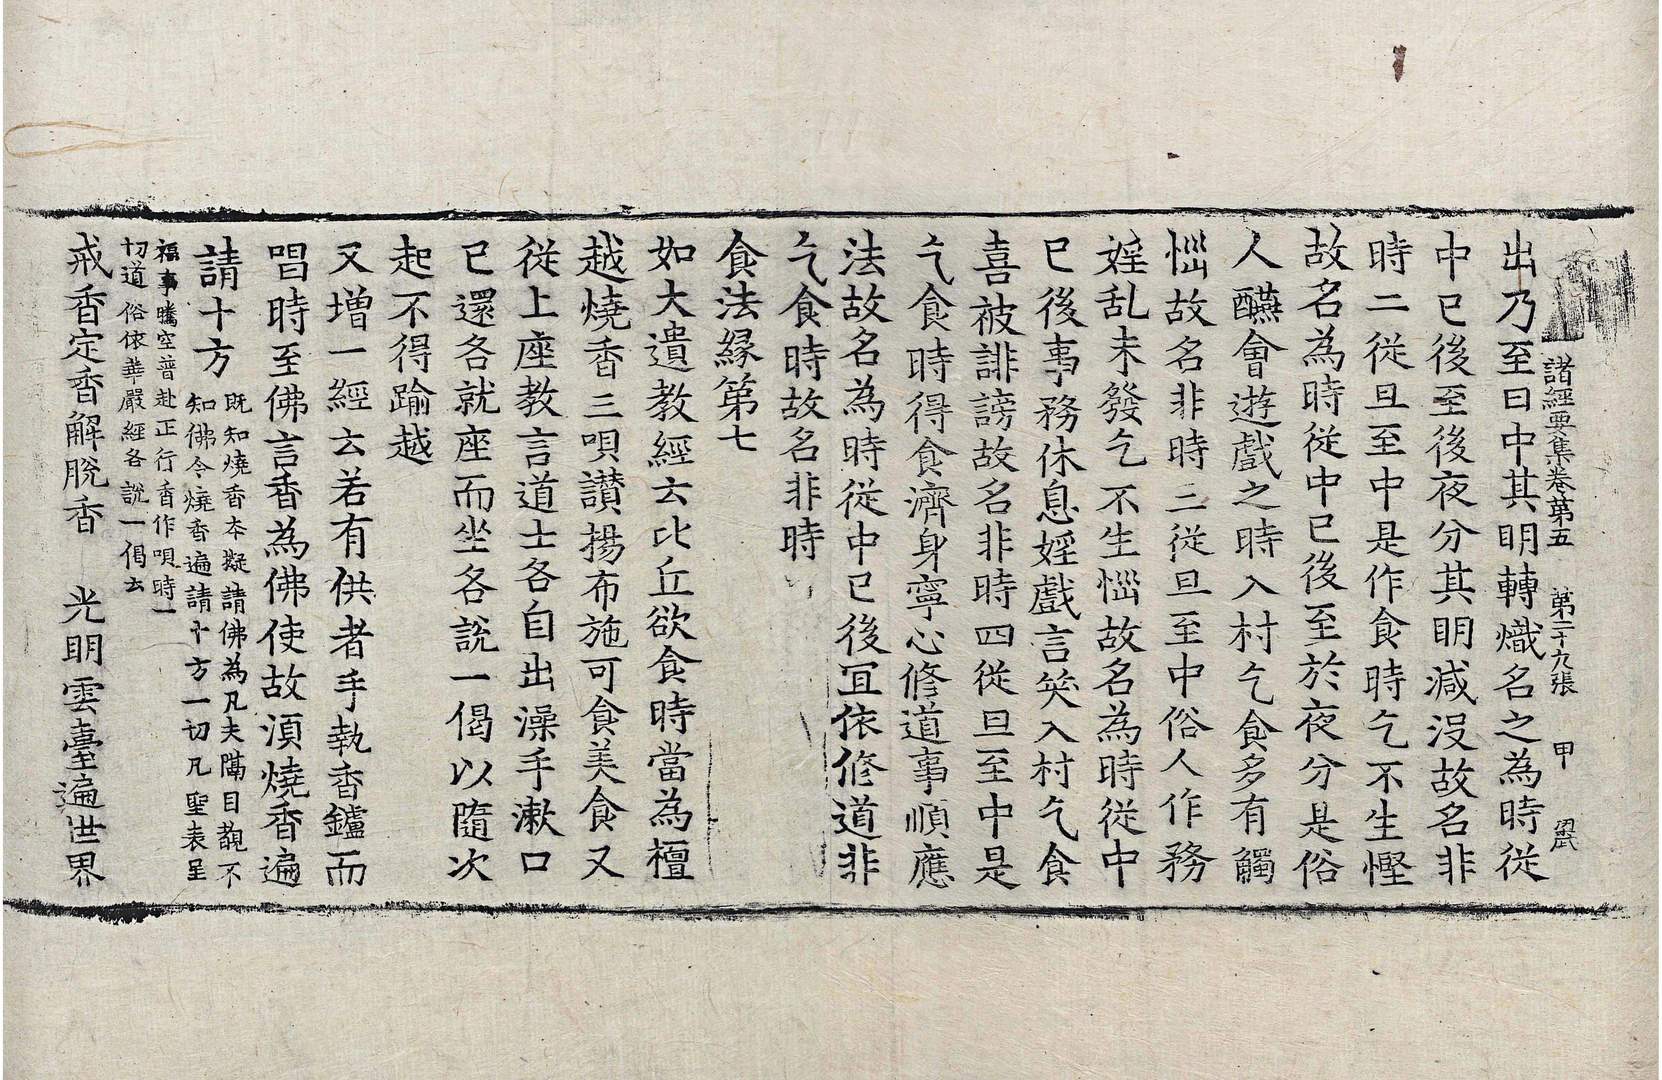 諸經要集卷第五 第二十九張 甲
出乃至日中其明轉熾名之為時從
中已後至後夜分其明減沒故名非
時二從旦至中是作食時乞不生慳
故名為時從中已後至於夜分是俗
人醼會遊戲之時入村乞食多有觸
惱故名非時三從旦至中俗人作務
婬乱未發乞不生惱故名為時從中
已後事務休息婬戲言笑入村乞食
喜被誹謗故名非時四從旦至中是
乞食時得食濟身寧心修道事順應
法故名為時從中已後宜依修道非
乞食時故名非時
食法緣第七
如大遺教經云比丘欲食時當為檀
越燒香三唄讃揚布施可食美食又
從上座教言道士各各自出澡手漱口
已還各就座而坐各說一偈以隨次
起不得踰越
又增一經云若有供者手執香鑪而
唱時至佛言香為佛使故須燒香遍
請十方
既知燒香本擬請佛為凡夫隔目覩不
知佛令燒香遍請十方一切凡聖表呈
福事騰空普赴正行香作唄時一
切道俗依華嚴經各說一偈云
戒香定香解脫香 光明雲臺遍世界